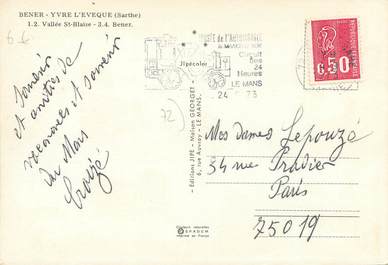 BENER - YVRE L'EVEQUE (Sarthe)
1.2. Vallée St-Blaise - 3.4. Bener.
6 €
Souvenir
et amitiés de
vacances et souvenir
du Mans
Croizé
MUSÉE de l'AUTOMOBILE
Circuit
Des
24
Heures
LE MANS
24 73
Jipécolor
72
Editions JIPE - Maison GEORGET
6, rue Auvray - LE MANS.
0.50
Mes dames Lepouzé
34 rue Pradier
Paris
75019
Couleurs naturelles
SPADEM
Imprimé en France